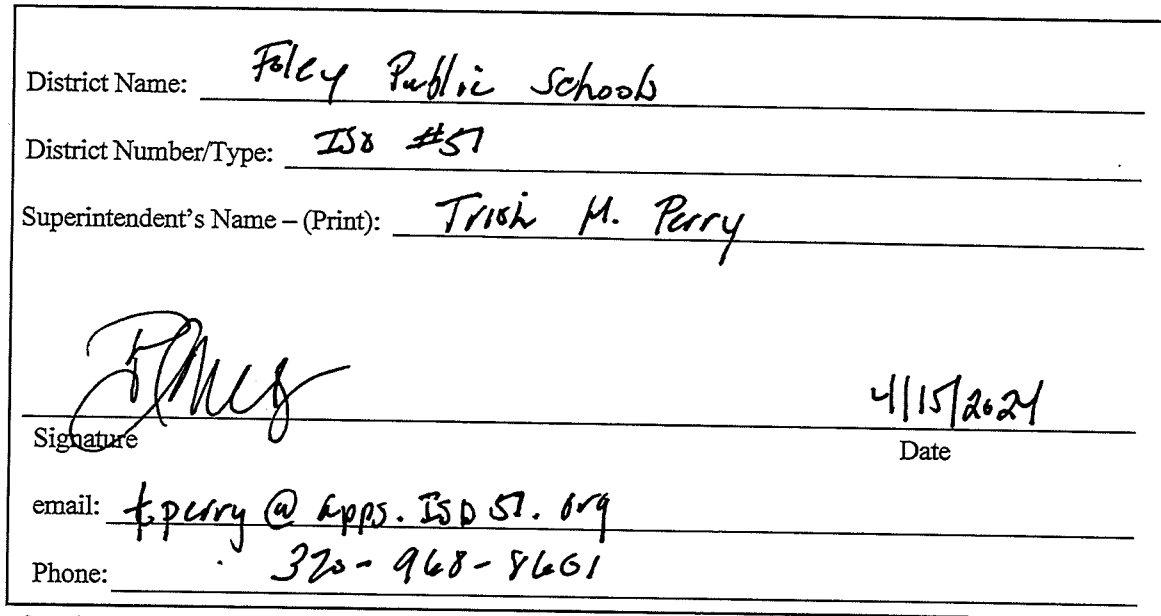 District Name: Foley Public Schools
District Number/Type: ISD #51
Superintendent's Name – (Print): Trish M. Perry
4/15/2024
Signature Date
email: tperry@apps.ISD51.org
Phone: 320-968-8601